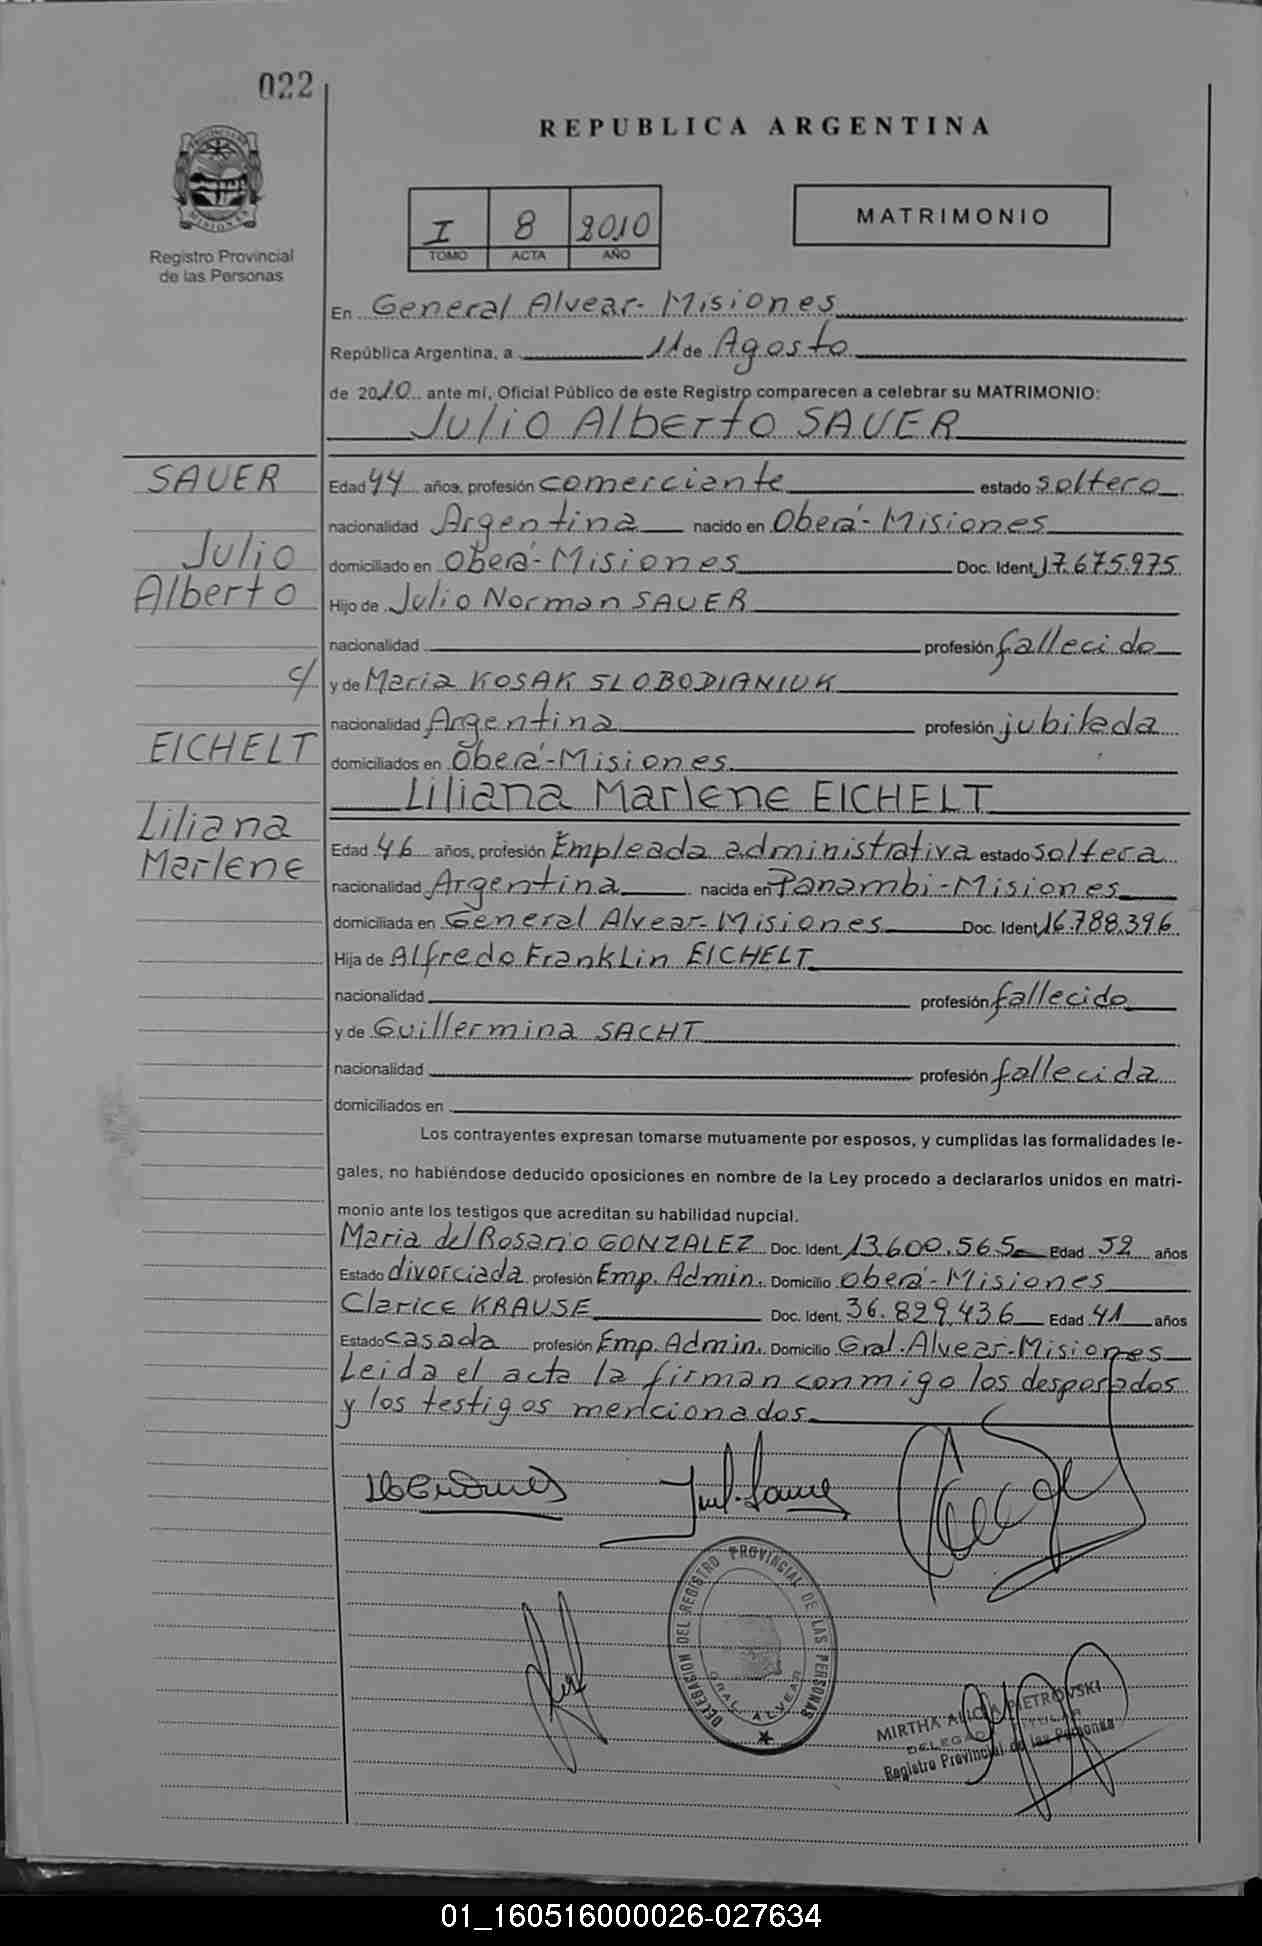 022
REPUBLICA ARGENTINA
I 8 2010
TOMO ACTA AÑO
MATRIMONIO
MISIONES
Registro Provincial
de las Personas
En General Alvear- Misiones
República Argentina, a 11 de Agosto
de 2010 ante mí, Oficial Público de este Registro comparecen a celebrar su MATRIMONIO:
Julio Alberto SAUER
SAUER
Julio
Alberto
c/
EICHELT
Liliana
Marlene
Edad 44 años, profesión comerciante estado soltero
nacionalidad Argentina nacido en Oberá-Misiones
domiciliado en Oberá-Misiones Doc. Ident. 17.675.975
Hijo de Julio Norman SAUER
nacionalidad profesión fallecido
y de Maria KOSAK SLOBODIANIUK
nacionalidad Argentina profesión jubilada
domiciliados en Oberá-Misiones
Liliana Marlene EICHELT
Edad 46 años, profesión Empleada administrativa estado soltera
nacionalidad Argentina nacida en Panambi-Misiones
domiciliada en General Alvear-Misiones Doc. Ident. 16.788.396
Hija de Alfredo Franklin EICHELT
nacionalidad profesión fallecido
y de Guillermina SACHT
nacionalidad profesión fallecida
domiciliados en
Los contrayentes expresan tomarse mutuamente por esposos, y cumplidas las formalidades le-
gales, no habiéndose deducido oposiciones en nombre de la Ley procedo a declararlos unidos en matri-
monio ante los testigos que acreditan su habilidad nupcial.
Maria del Rosario GONZALEZ Doc. Ident. 13.600.565 Edad 52 años
Estado divorciada profesión Emp. Admin. Domicilio Oberá-Misiones
Clarice KRAUSE Doc. Ident. 36.829.436 Edad 41 años
Estado casada profesión Emp. Admin. Domicilio Gral. Alvear-Misiones
Leida el acta la firman conmigo los desposados
y los testigos mencionados
DELEGACION DEL REGISTRO PROVINCIAL DE LAS PERSONAS
GRAL. ALVEAR
MIRTHA ALICIA PIETROVSKI
DELEGADA TITULAR
Registro Provincial de las Personas
01_160516000026-027634